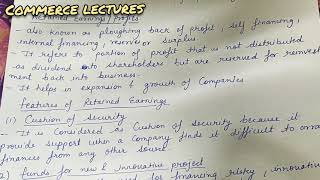 COMMERCE LECTURES
Retained Earnings / Profits
- also known as ploughing back of profit, self financing,
internal financing, reserves or surplus
- It refers to portion of profit that is not distributed
as dividend to shareholders but are reserved for reinvest
ment back into business.
- It helps in expansion & growth of Companies
Features of Retained Earnings
(1) Cushion of Security
- It is Considered as Cushion of security because it
provide support when a Company finds it difficult to
finances from any other source.
2) funds for new & Innovative project
for financing risky, innovative